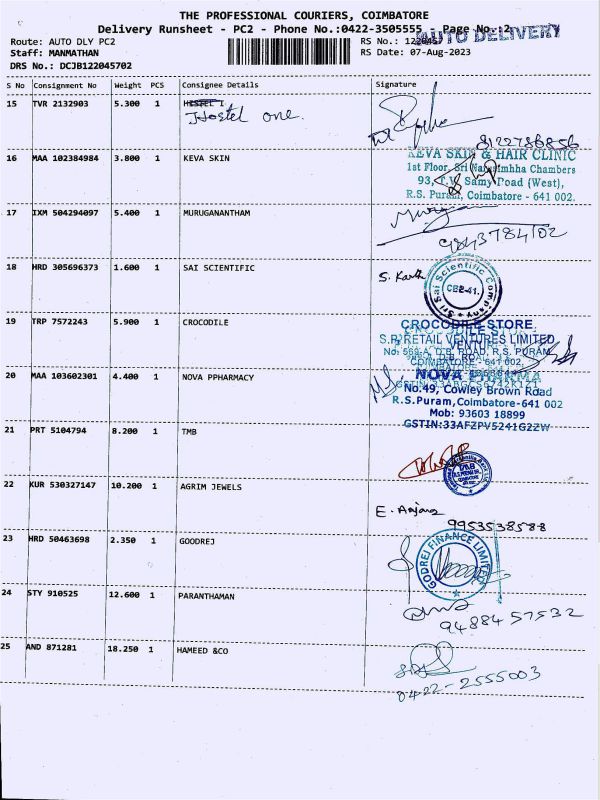 THE PROFESSIONAL COURIERS, COIMBATORE
Delivery Runsheet - PC2 - Phone No.:0422-3505555 - Page No.:2
AUTO DELIVERY
Route: AUTO DLY PC2
RS No.:
Staff: MANMATHAN
RS Date: 07-Aug-2023
DRS No.: DCJB122045702
S No Consignment No Weight PCS Consignee Details Signature
15 TVR 2132903 5.300 1 HOSTEL 1
Hostel one.
8122786856
16 MAA 102384984 3.800 1 KEVA SKIN
KEVA SKIN & HAIR CLINIC
1st Floor, Sri Narasimhha Chambers
93, T.V. Samy Road (West),
R.S. Puram, Coimbatore - 641 002.
17 IXM 504294097 5.400 1 MURUGANANTHAM
9843784102
18 HRD 305696373 1.600 1 SAI SCIENTIFIC
S. Karth
Sri Sai Scientific Company
CBE-41.
19 TRP 7572243 5.900 1 CROCODILE
CROCODILE STORE
S.P. RETAIL VENTURES LIMITED
D.B. ROAD, R.S. PURAM
COIMBATORE - 641 002
20 MAA 103602301 4.400 1 NOVA PPHARMACY
NOVA PHARMA
No.49, Cowley Brown Road
R.S.Puram,Coimbatore-641 002
Mob: 93603 18899
GSTIN:33AFZPV5241G2ZW
21 PRT 5104794 8.200 1 TMB
TMB
22 KUR 530327147 10.200 1 AGRIM JEWELS
E. Anjana
9953538588
23 HRD 50463698 2.350 1 GOODREJ
GODREJ FINANCE LIMITED
24 STY 910525 12.600 1 PARANTHAMAN
9488457532
25 AND 871281 18.250 1 HAMEED &CO
0422-2555003